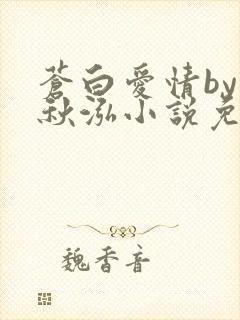 蒼白愛情by
秋泓小說免
魏香音